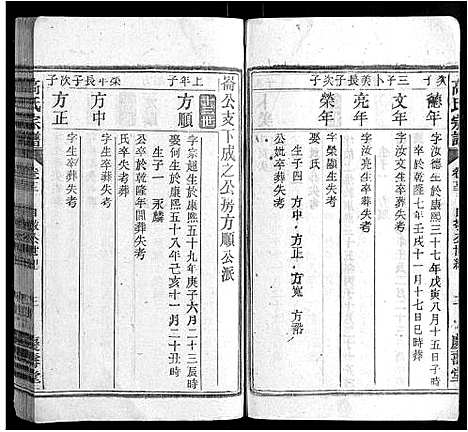 高氏宗譜
慶善堂
德年
字汝德生於康熙三十七年戊寅八月十五日子時
卒於乾隆七年壬戌十一月十七日巳時葬
文年
字汝文生卒葬失考
三子
卜美長子
亮年
字汝亮生卒葬失考
次子
榮年
字榮顯生卒葬失考
公妣卒葬失考
氏
生子四 方中 方正 方寬 方裕
崙公支下成之公房方順公派
上年子
方順
字宗超生於康熙五十九年庚子六月二十三辰時
娶何生於康熙五十八年己亥十一月二十丑時
公卒於乾隆年間葬失考
氏卒葬失考
生子一 永麟
榮年長子
方中
字生卒葬失考
次子
方正
字生卒葬失考
高氏宗譜
慶善堂